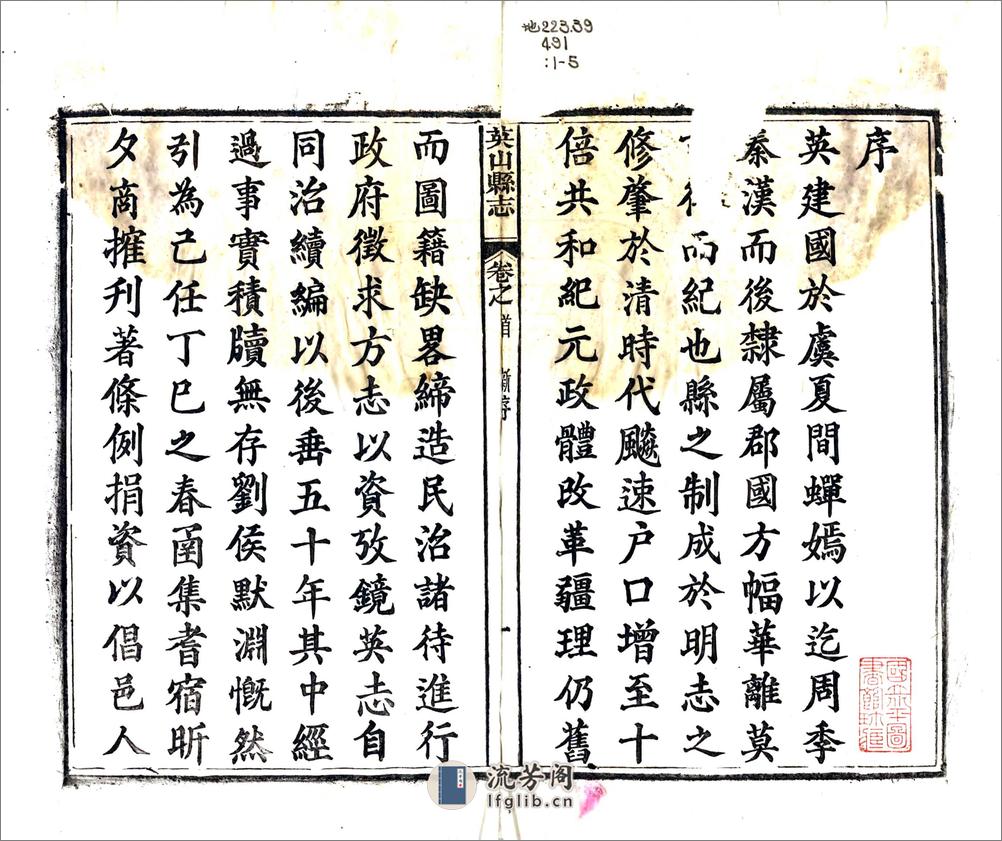 地223.39
491
:1-5
序
英建國於虞夏間蟬嫣以迄周季
秦漢而後隸屬郡國方幅華離莫
而紀也縣之制成於明志之
修肇於清時代飈速户口增至十
倍共和紀元政體改革疆理仍舊
英山縣志 卷之首 新序 一
而圖籍缺畧締造民治諸待進行
政府徵求方志以資攷鏡英志自
同治續編以後垂五十年其中經
過事實積牘無存劉侯默淵慨然
引為己任丁巳之春函集耆宿昕
夕商搉刋著條例捐資以倡邑人
流芳阁
lfglib.cn